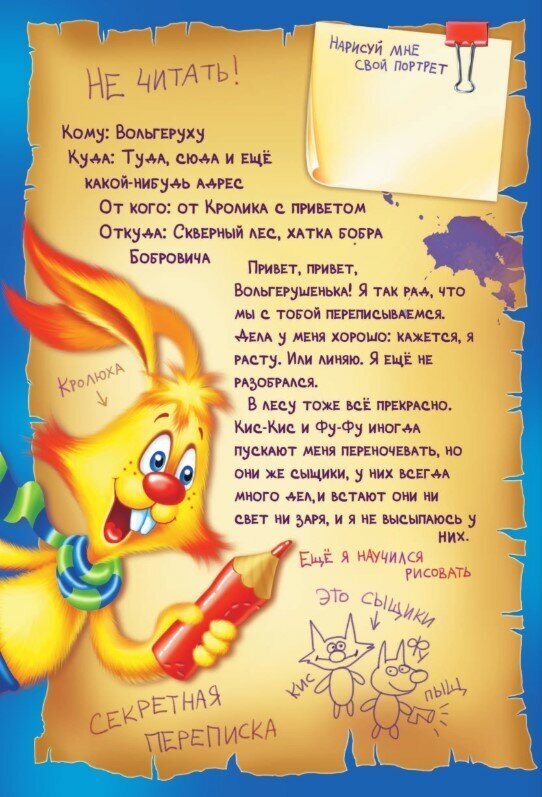 Не читать!
Нарисуй мне
свой портрет
Кому: Вольгеруху
Куда: Туда, сюда и ещё
какой-нибудь адрес
От кого: от Кролика с приветом
Откуда: Скверный лес, хатка бобра
Бобровича
Привет, привет,
Вольгерушенька! Я так рад, что
мы с тобой переписываемся.
Дела у меня хорошо: кажется, я
расту. Или линяю. Я ещё не
разобрался.
В лесу тоже всё прекрасно.
Кис-Кис и Фу-Фу иногда
пускают меня переночевать, но
они же сыщики, у них всегда
много дел,и встают они ни
свет ни заря, и я не высыпаюсь у
них.
Кролюха
Ещё я научился
рисовать
Это сыщики
Кис
Пыщ
Секретная
переписка